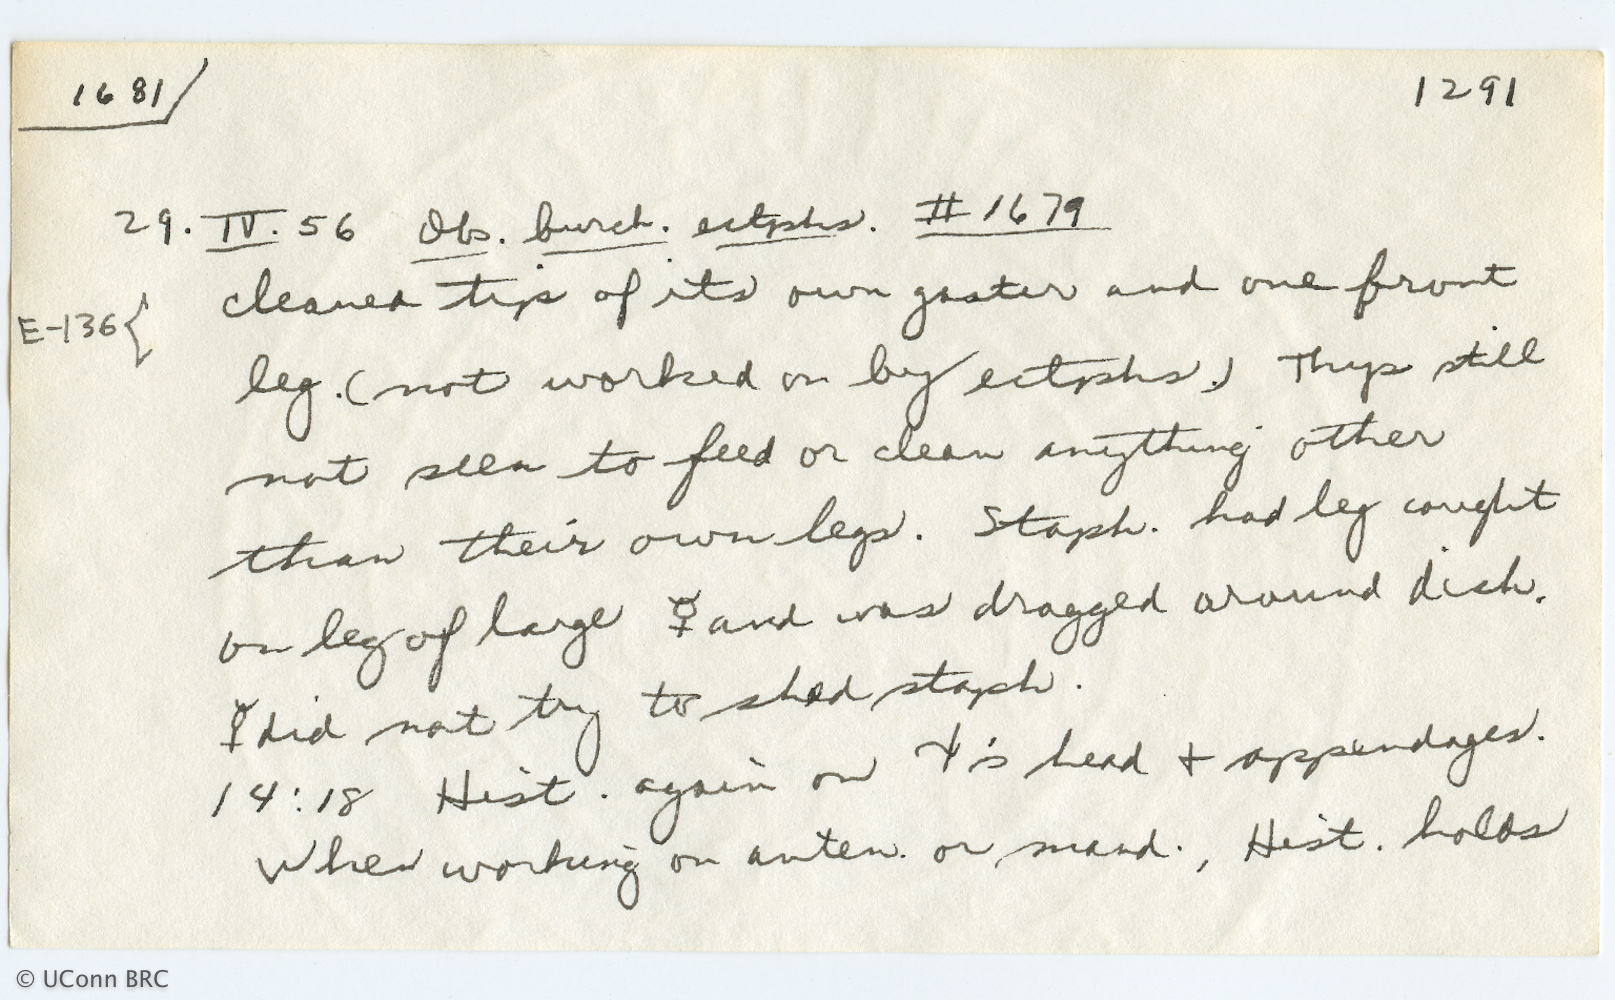 1681
1291
29.IV.56 Obs. burch. ectphs. #1679
cleaned tip of its own gaster and one front
E-136{
leg. (not worked on by ectphs.) Thys still
not seen to feed or clean anything other
than their own legs. Staph. had leg caught
on leg of large ☿ and was dragged around dish.
☿ did not try to shed staph.
14:18 Hist. again on ☿'s head + appendages.
When working on anten. or mand., Hist. holds
© UConn BRC